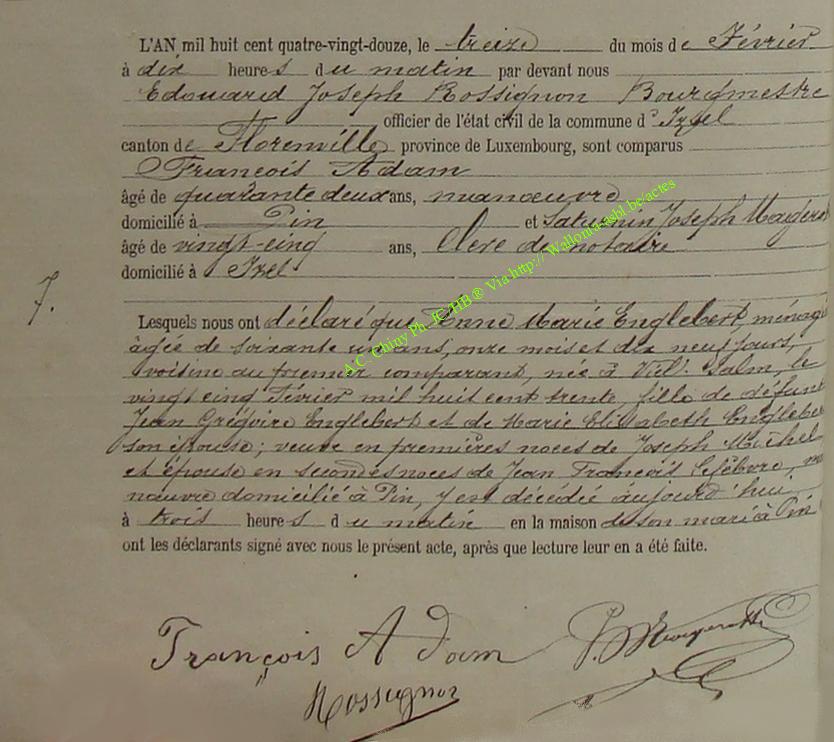 L'AN mil huit cent quatre-vingt-douze, le treize du mois de Février
à dix heures du matin par devant nous
Edouard Joseph Rossignon Bourgmestre
officier de l'état civil de la commune d'Izel
canton de Florenville province de Luxembourg, sont comparus
François Adam
âgé de quarante deux ans, manoeuvre
domicilié à Pin et Saturnin Joseph
âgé de vingt-cinq ans, Clerc de notaire
domicilié à Izel
7.
Lesquels nous ont déclaré que Anne Marie Englebert, ménag
âgée de soixante un ans, onze mois et dix neuf jours,
voisine au premier comparant, née à Viel Salm, le
vingt cinq Février mil huit cent trente, fille de défunt
Jean Grégoire Englebert et de Marie Elisabeth Englebe
son épouse; veuve en premières noces de Joseph Michel
et épouse en secondes noces de Jean François Lefèbvre, ma
noeuvre domicilié à Pin, y est décédée aujourd'hui
à trois heures du matin en la maison de son mari à Pin
ont les déclarants signé avec nous le présent acte, après que lecture leur en a été faite.
François Adam
Rossignon
A.C. Chiny Ph. JC/HB ® Via http://Wallonia-asbl.be/actes